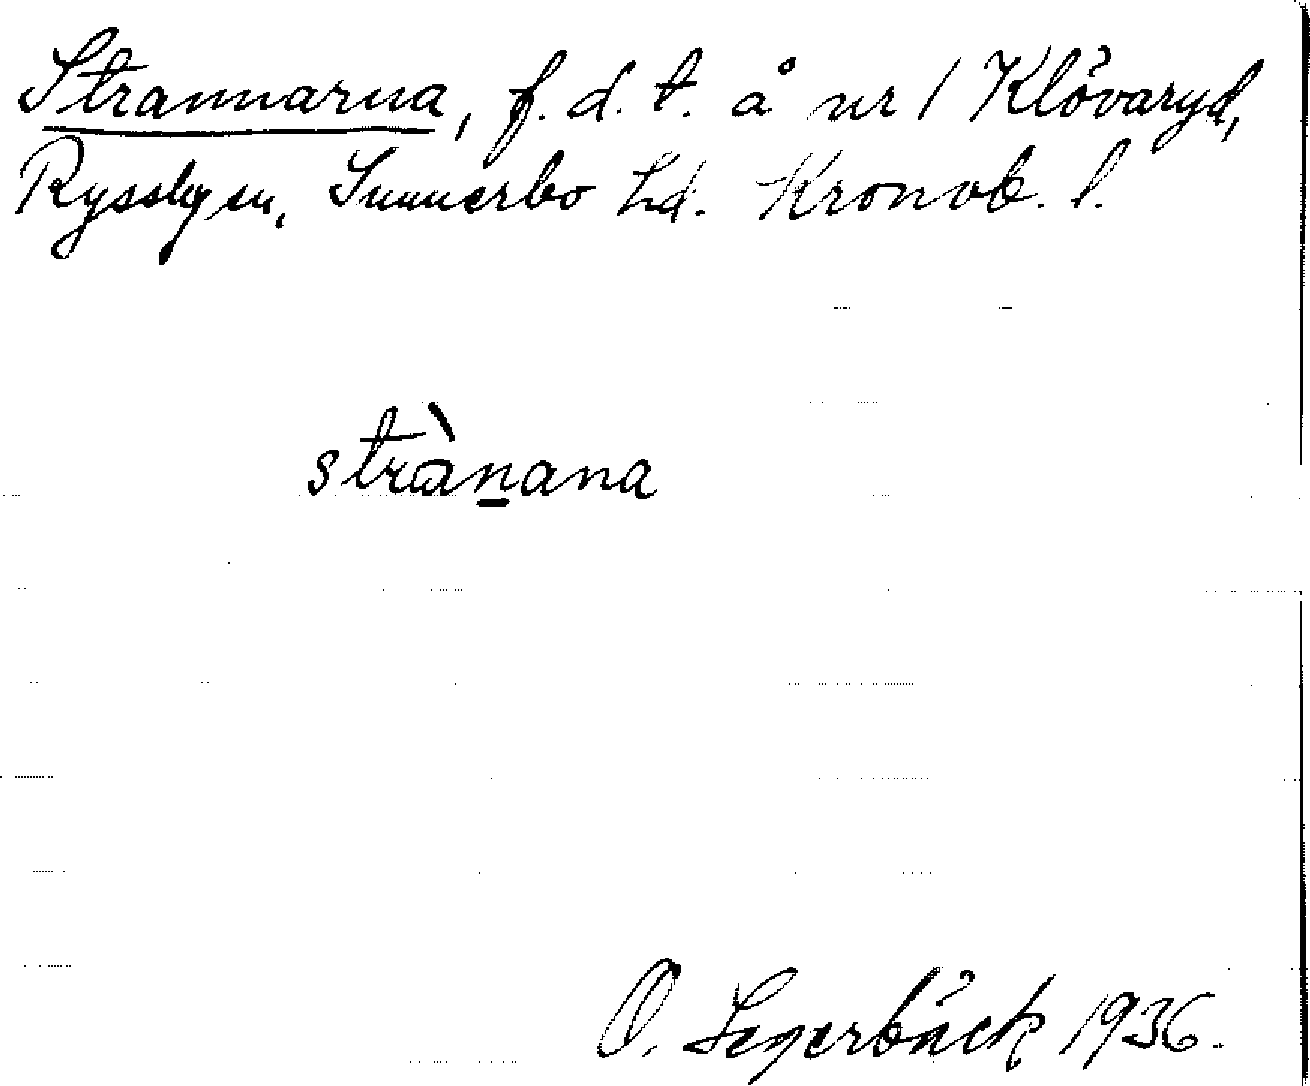 Strannarna, f.d.t. å nr 1 Klövaryd,
Ryssbyn, Sunnerbo hd. Kronob. l.
stràṉana
O. Segerbäck 1936.